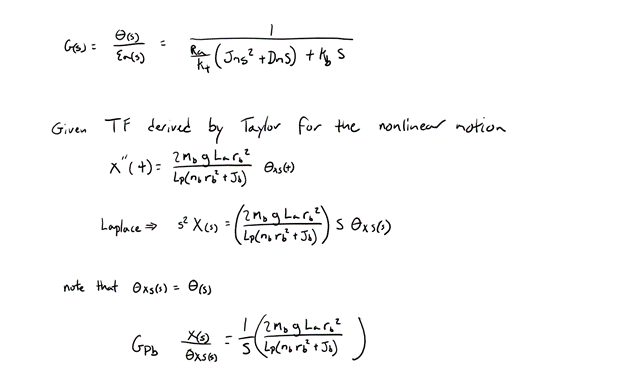 G(s) = θ(s)/Ea(s) = 1/(Ra/Kt (Jms² + Dms) + Kb s)
Given TF derived by Taylor for the nonlinear motion
x''(t) = 2mb g La rb²/(Lp(mb rb² + Jb)) θxs(t)
Laplace ⇒ s² X(s) = (2mb g La rb²/(Lp(mb rb² + Jb))) s θxs(s)
note that θxs(s) = θ(s)
Gpb X(s)/θxs(s) = 1/s (2mb g La rb²/(Lp(mb rb² + Jb)))